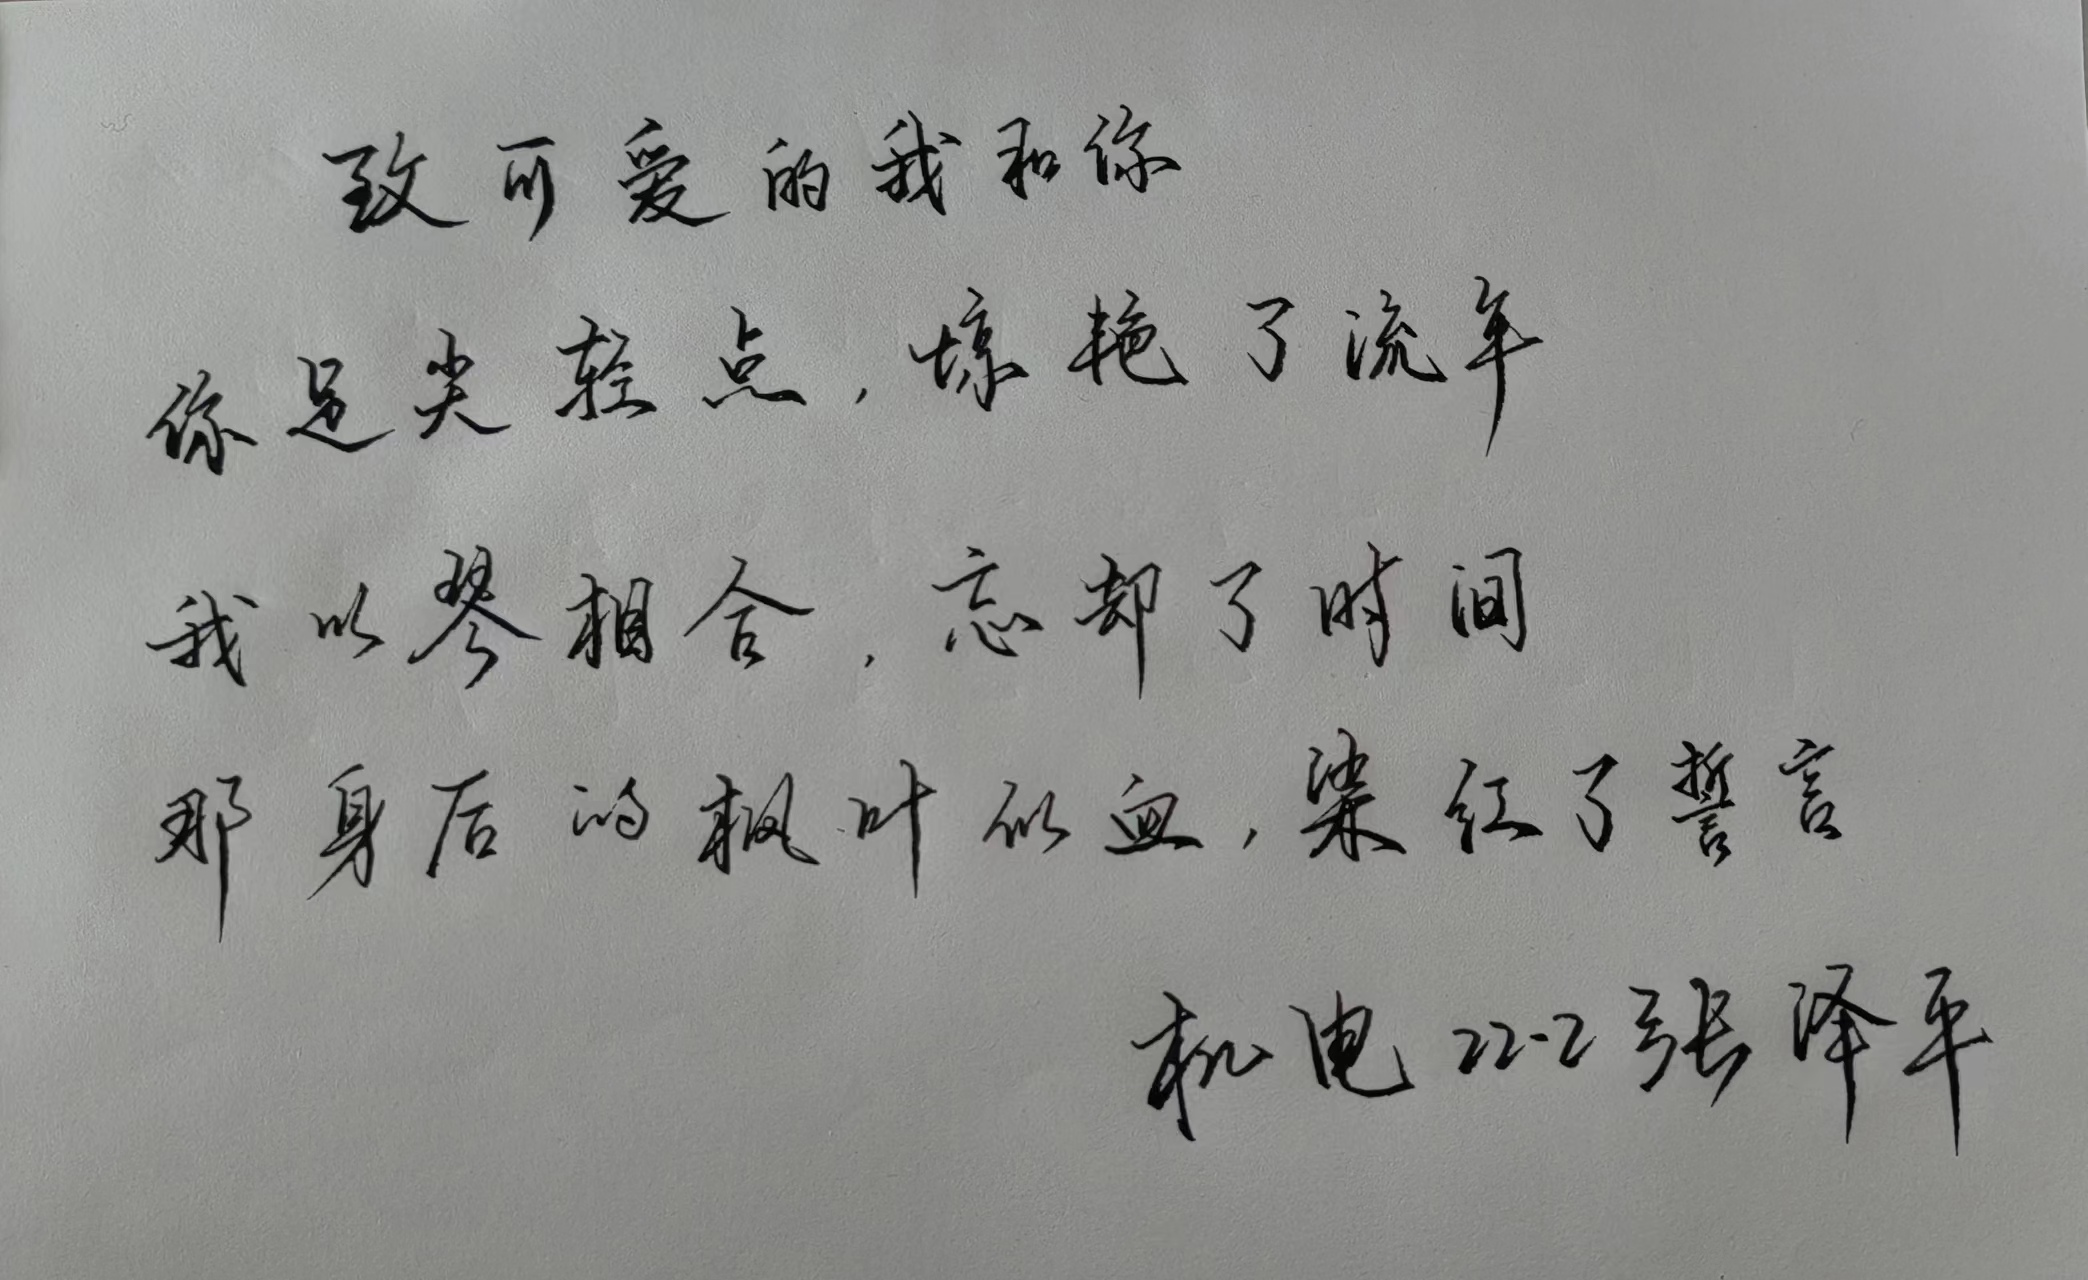 致可爱的我和你
你足尖轻点,惊艳了流年
我以琴相合,忘却了时间
那身后的枫叶似血,染红了誓言
机电22-2张泽平